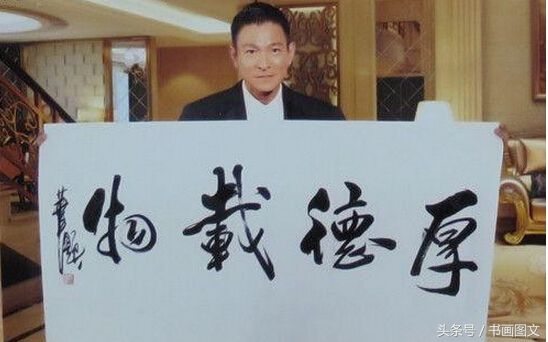 厚德載物
头条号 / 书画图文